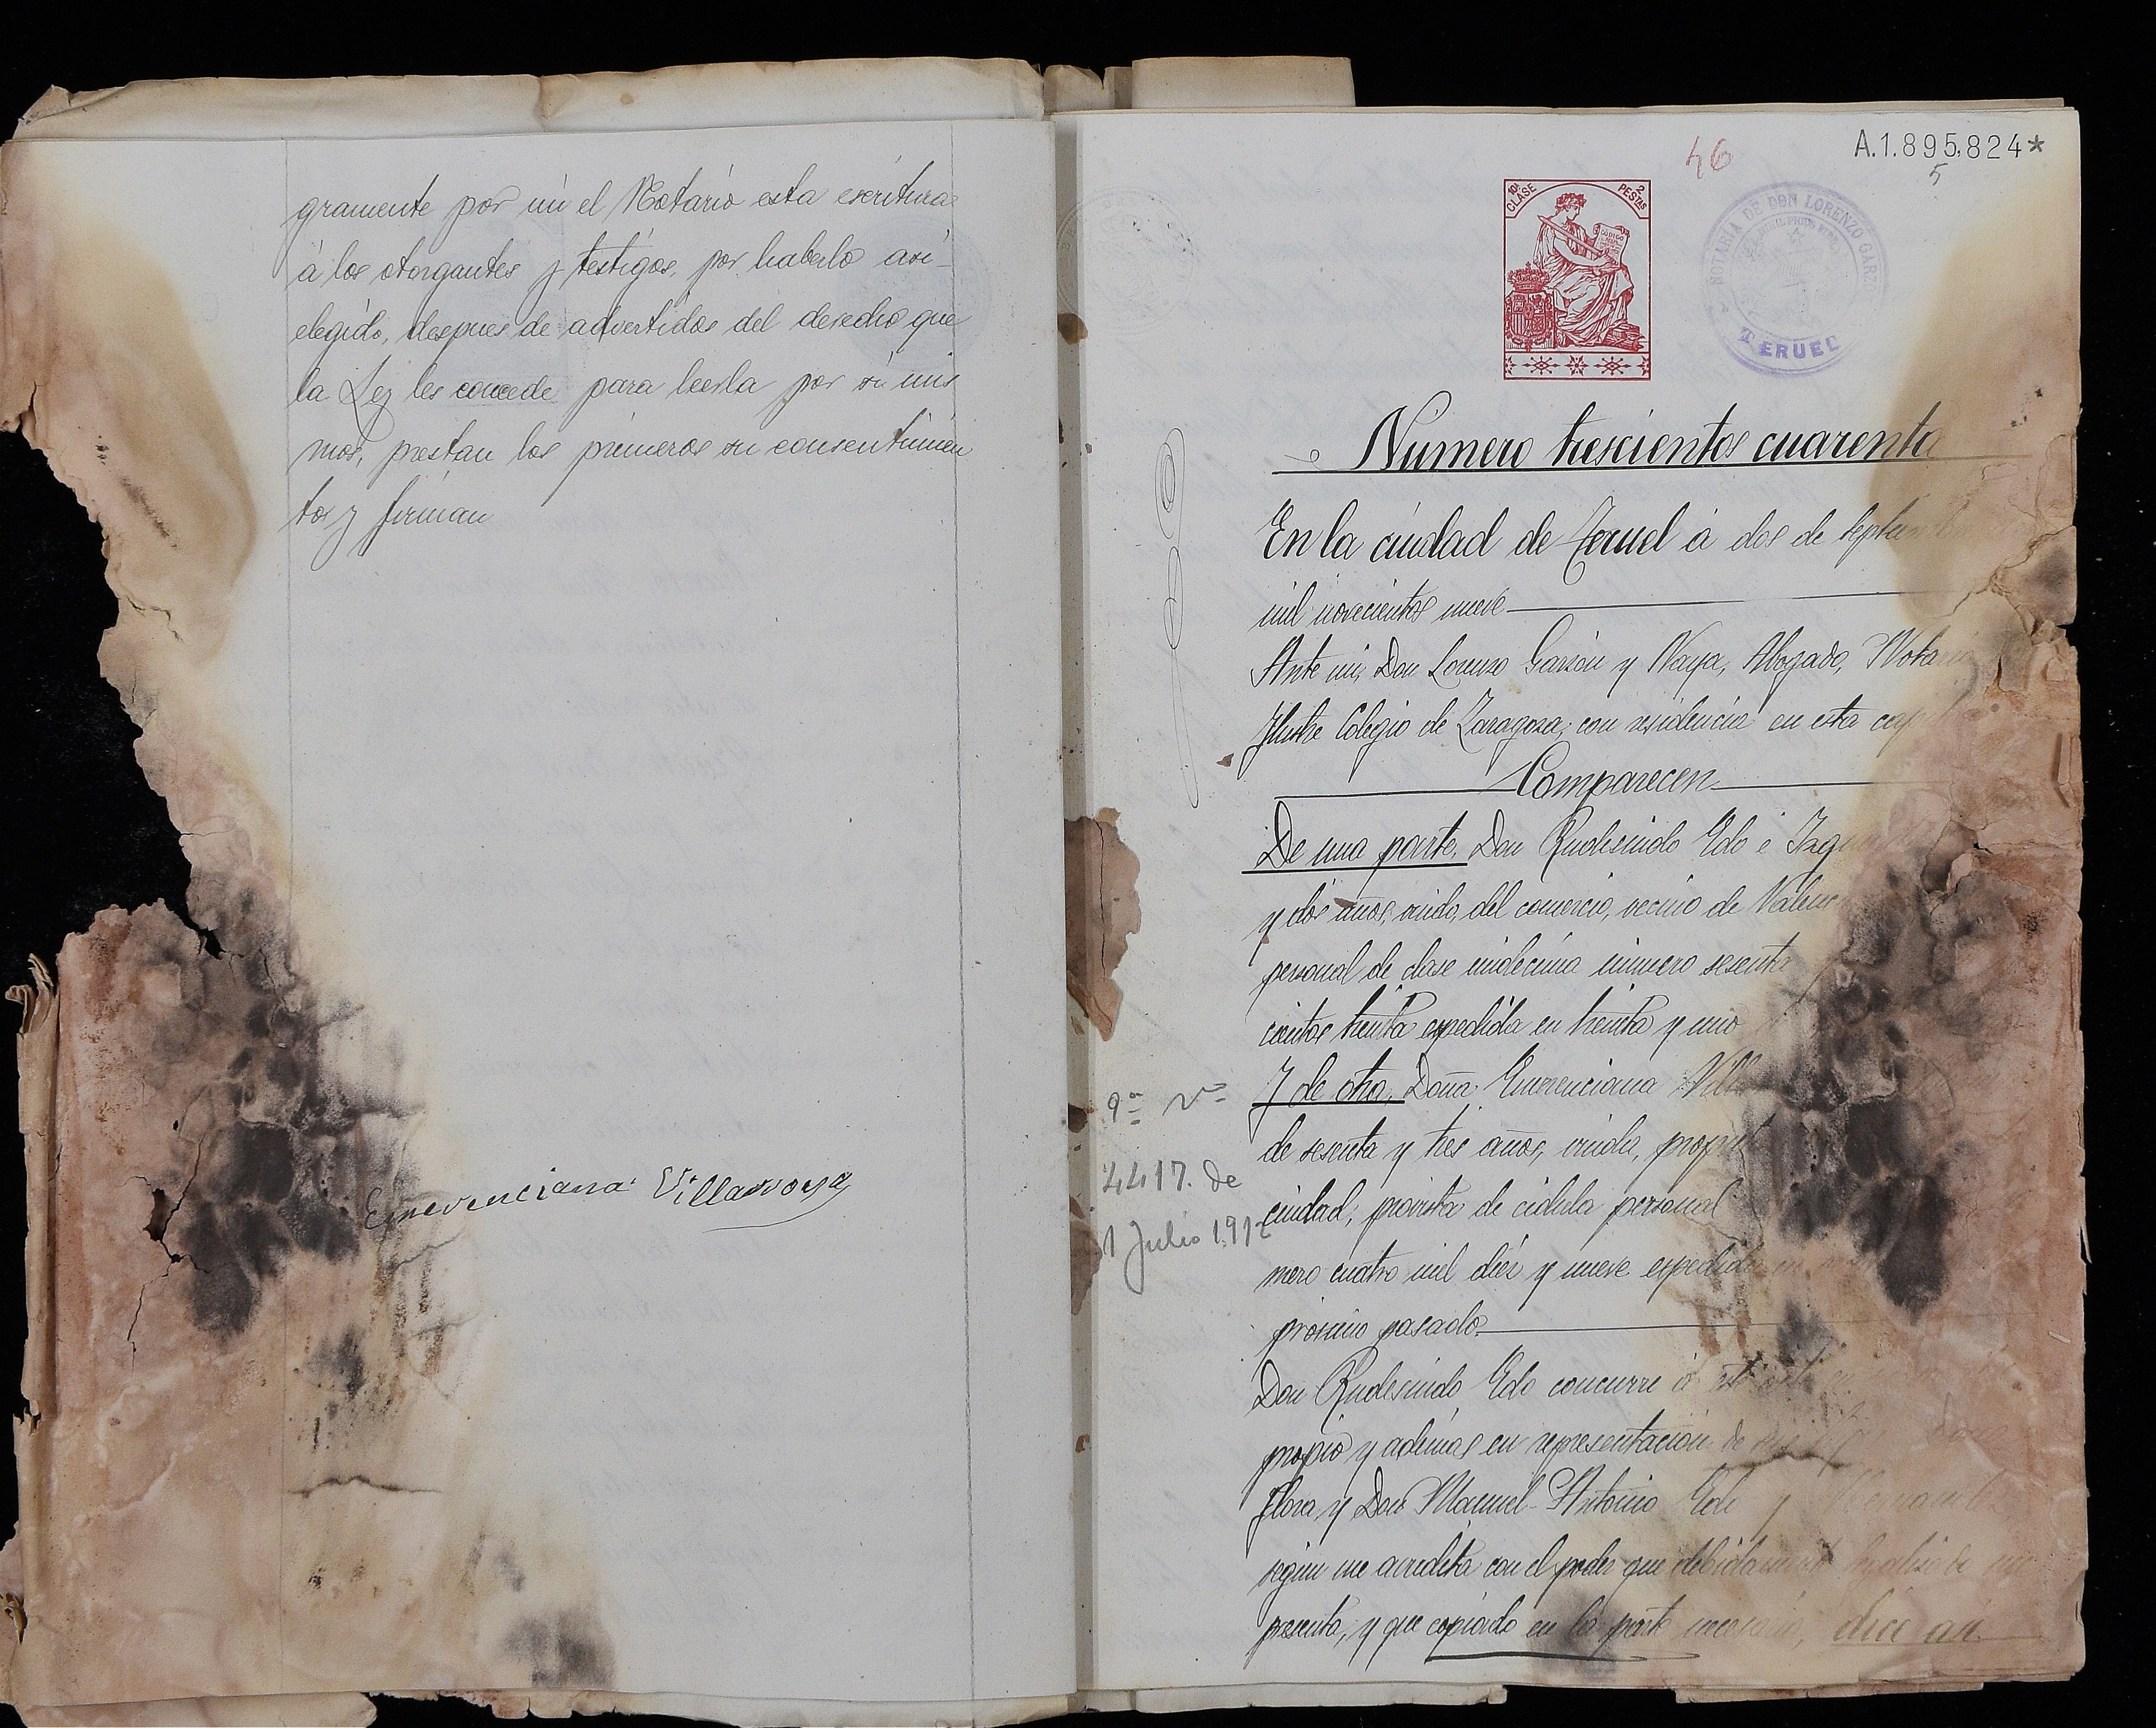 gramente por mi el Notario esta escritura
á los otorgantes y testigos, por haberlo asi
elegido, despues de advertidos del derecho que
la Ley les concede para leerla por si mis
mos, prestan los primeros su consentimien
to y firman
Emerenciana Villarroya
A.1.895,824*
5
46
10ª CLASE
2 PESTAS
CODIGO
NOTARÍA DE DON LORENZO GARZ
TERUEL
Número trescientos cuarenta
En la ciudad de Teruel á dos de septiem
mil novecientos nueve
Ante mi, Don Lorenzo Garzón y Naya, Abogado, Notario
Ilustre Colegio de Zaragoza, con residencia en esta cap
Comparecen
De una parte. Don Rudesindo Edo é Izq
y dos años, viudo, del comercio, vecino de Valenc
personal de clase undécima número sesenta
cientos treinta expedida en treinta y uno
Y de otra. Doña Emerenciana Vill
de sesenta y tres años, viuda, propiet
ciudad, provista de cédula personal
mero cuatro mil diez y nueve expedida en
próximo pasado.
Don Rudesindo Edo concurre á este acto en
propio y además en representación de sus hijos Doña
Flora y Don Manuel-Antonio Edo y
según me acredita con el poder que debidamente legalizado me
presenta, y que copiado en la parte necesaria, dice así.
9ª
4417. de
1 Julio 1.912